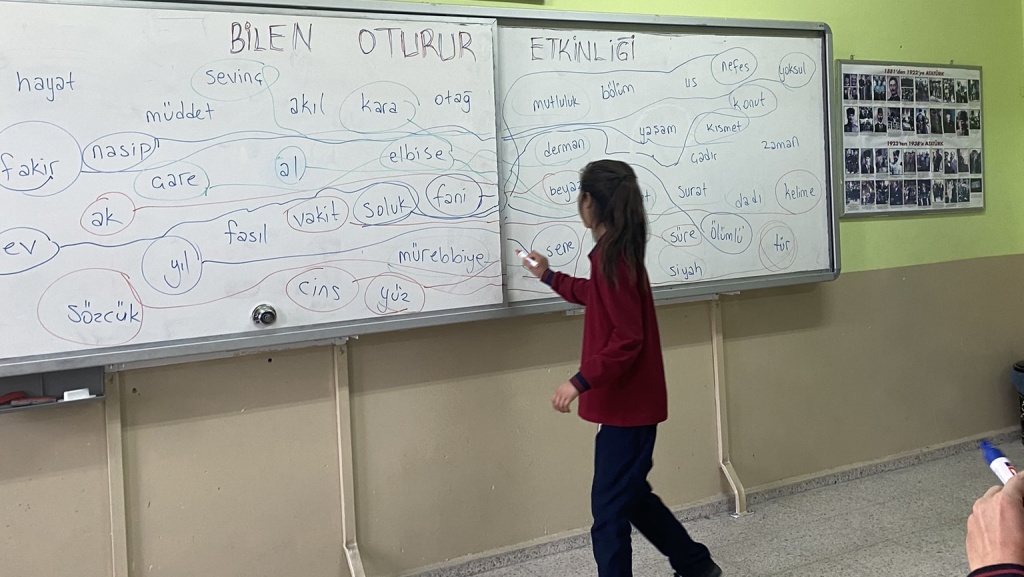 BİLEN OTURUR ETKİNLİĞİ
hayat sevinç müddet akıl kara otağ
fakir nasip çare al elbise
ak vakit soluk fani
ev yıl fasıl mürebbiye
sözcük cins yüz
mutluluk bölüm us nefes yoksul
konut
derman yaşam kısmet zaman
çadır
surat dadı kelime
sene süre ölümlü tür
siyah
1881'den 1922'ye ATATÜRK
1923'ten 1938'e ATATÜRK